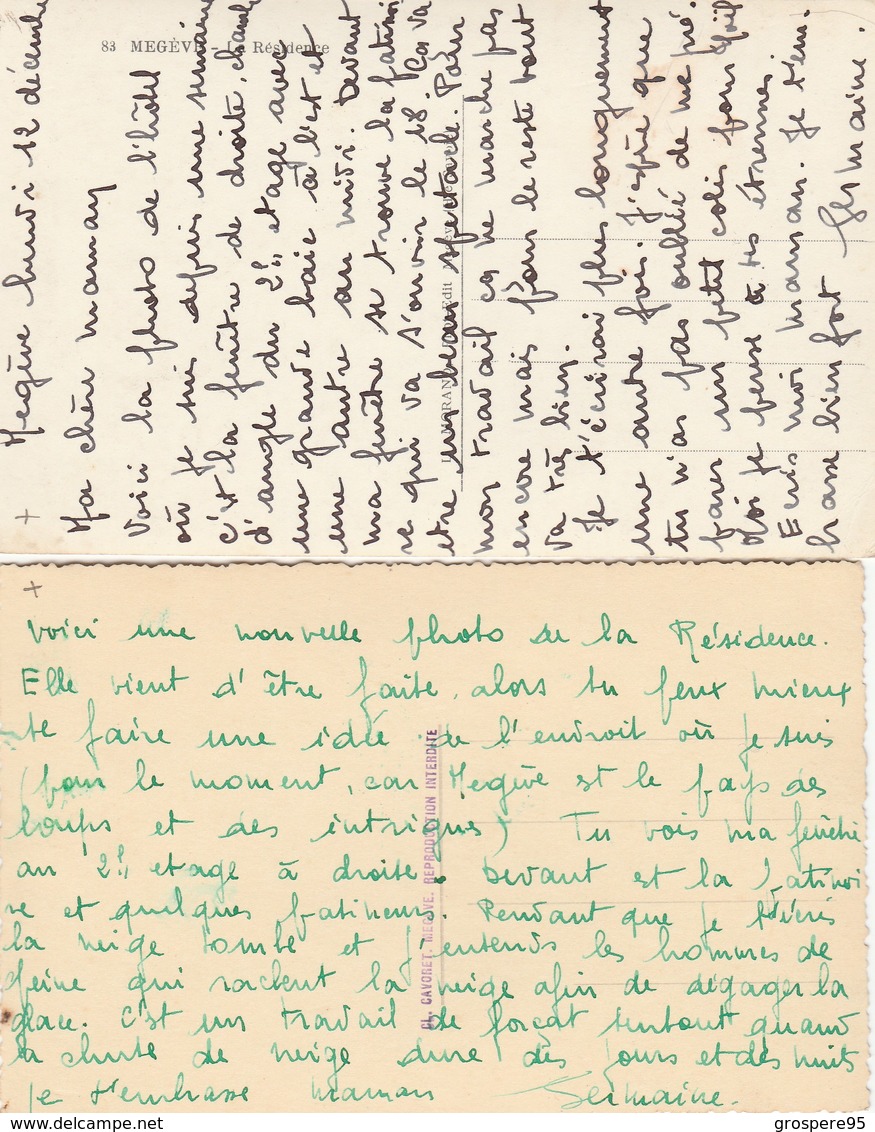 83 MEGÈVE - La Résidence
Megève lundi 12 décembre
Ma chère maman
Voici la photo de l'hôtel
où je suis depuis une semaine
c'est la fenêtre de droite, chambre
d'angle du 2e étage avec
une grande baie à l'est et
une autre au midi. Devant
ma fenêtre se trouve la patinoi
re qui va s'ouvrir le 18. Ça va
etre un beau spectacle. Pour
mon travail ça ne marche pas
encore mais pour le reste tout
va très bien.
Je t'écrirai plus longuement
une autre fois. J'espère que
tu n'as pas oublié de me pré
parer un petit colis pour
Moi je pense à tes étrennes.
Ecris moi maman. Je t'em
brasse bien fort Germaine.
MORAND Edit
Voici une nouvelle photo de la Résidence.
Elle vient d'être faite, alors tu peux mieux
te faire une idée de l'endroit où je suis
(pour le moment, car Megève est le pays des
loups et des intrigues) Tu vois ma fenêtre
au 2e etage à droite. Devant est la patinoi
re et quelques patineurs. Pendant que je t'écris
la neige tombe et j'entends les hommes de
peine qui raclent la neige afin de dégager la
glace. C'est un travail de forçat surtout quand
la chute de neige dure des jours et des nuits
Je t'embrasse maman Germaine.
CL. CAVORET. MEGÈVE. REPRODUCTION INTERDITE
grospere95